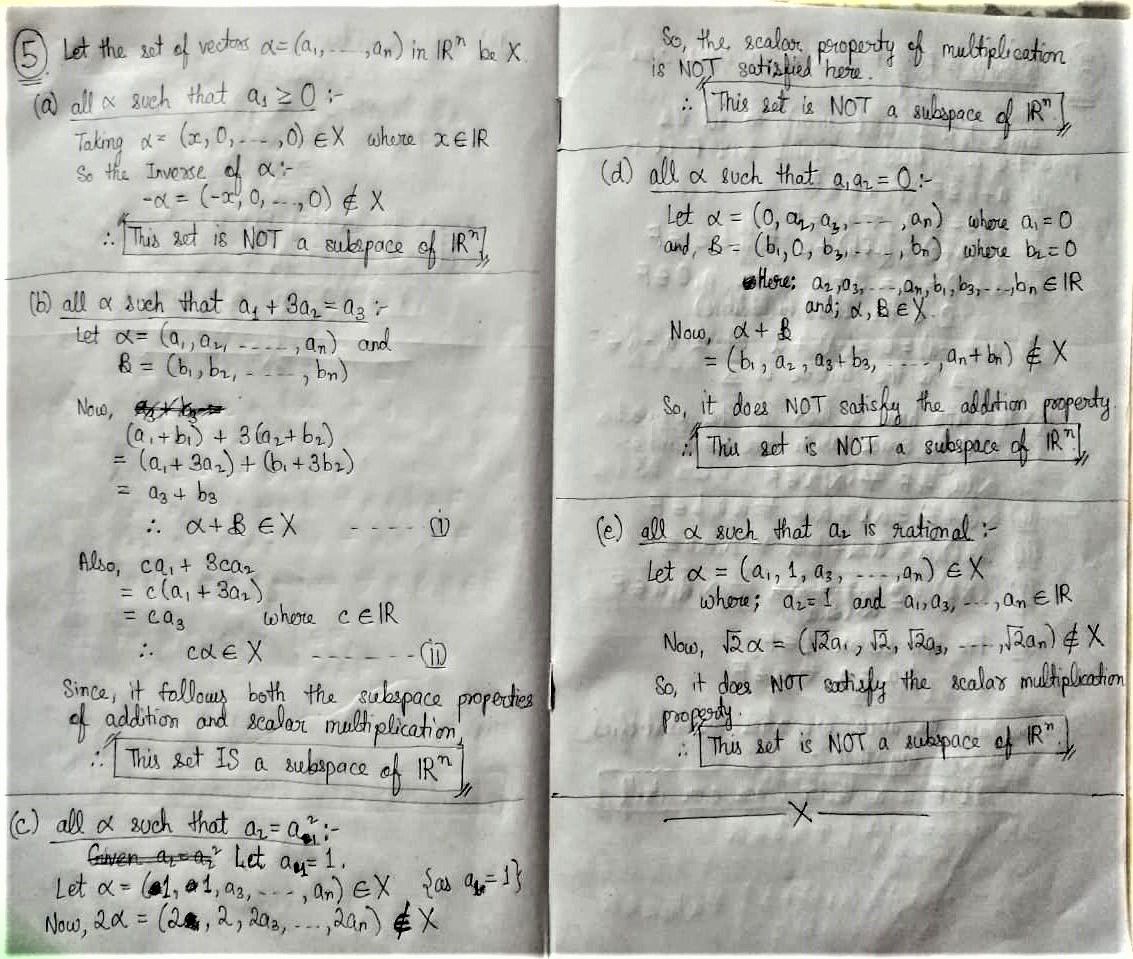 5 Let the set of vectors α=(a₁, ....., aₙ) in ℝⁿ be X.
(a) all α such that a₁ ≥ 0 :-
Taking α = (x, 0, ---, 0) ∈ X where x ∈ ℝ
So the Inverse of α :-
-α = (-x, 0, ..., 0) ∉ X
∴ This set is NOT a subspace of ℝⁿ
(b) all α such that a₁ + 3a₂ = a₃ :-
Let α = (a₁, a₂, ....., aₙ) and
B = (b₁, b₂, ....., bₙ)
Now,
(a₁+b₁) + 3(a₂+b₂)
= (a₁ + 3a₂) + (b₁ + 3b₂)
= a₃ + b₃
∴ α + B ∈ X ----- (i)
Also, ca₁ + 3ca₂
= c(a₁ + 3a₂)
= ca₃ where c ∈ ℝ
∴ cα ∈ X ------- (ii)
Since, it follows both the subspace properties
of addition and scalar multiplication,
∴ This set IS a subspace of ℝⁿ
(c) all α such that a₂ = a₁² :-
Given a₂ = a₁² Let a₁ = 1.
Let α = (1, 1, a₃, ---, aₙ) ∈ X {as a₁ = 1}
Now, 2α = (2, 2, 2a₃, ..., 2aₙ) ∉ X
So, the scalar property of multiplication
is NOT satisfied here.
∴ This set is NOT a subspace of ℝⁿ
(d) all α such that a₁a₂ = 0 :-
Let α = (0, a₂, a₃, ----, aₙ) where a₁ = 0
and, B = (b₁, 0, b₃, ----, bₙ) where b₂ = 0
Here; a₂, a₃, ---, aₙ, b₁, b₃, ---, bₙ ∈ ℝ
and; α, B ∈ X.
Now, α + B
= (b₁, a₂, a₃+b₃, ....., aₙ+bₙ) ∉ X
So, it does NOT satisfy the addition property.
∴ This set is NOT a subspace of ℝⁿ
(e) all α such that a₂ is rational :-
Let α = (a₁, 1, a₃, ----, aₙ) ∈ X
where; a₂ = 1 and a₁, a₃, ---, aₙ ∈ ℝ
Now, √2α = (√2a₁, √2, √2a₃, ---, √2aₙ) ∉ X
So, it does NOT satisfy the scalar multiplication
property.
∴ This set is NOT a subspace of ℝⁿ.
X